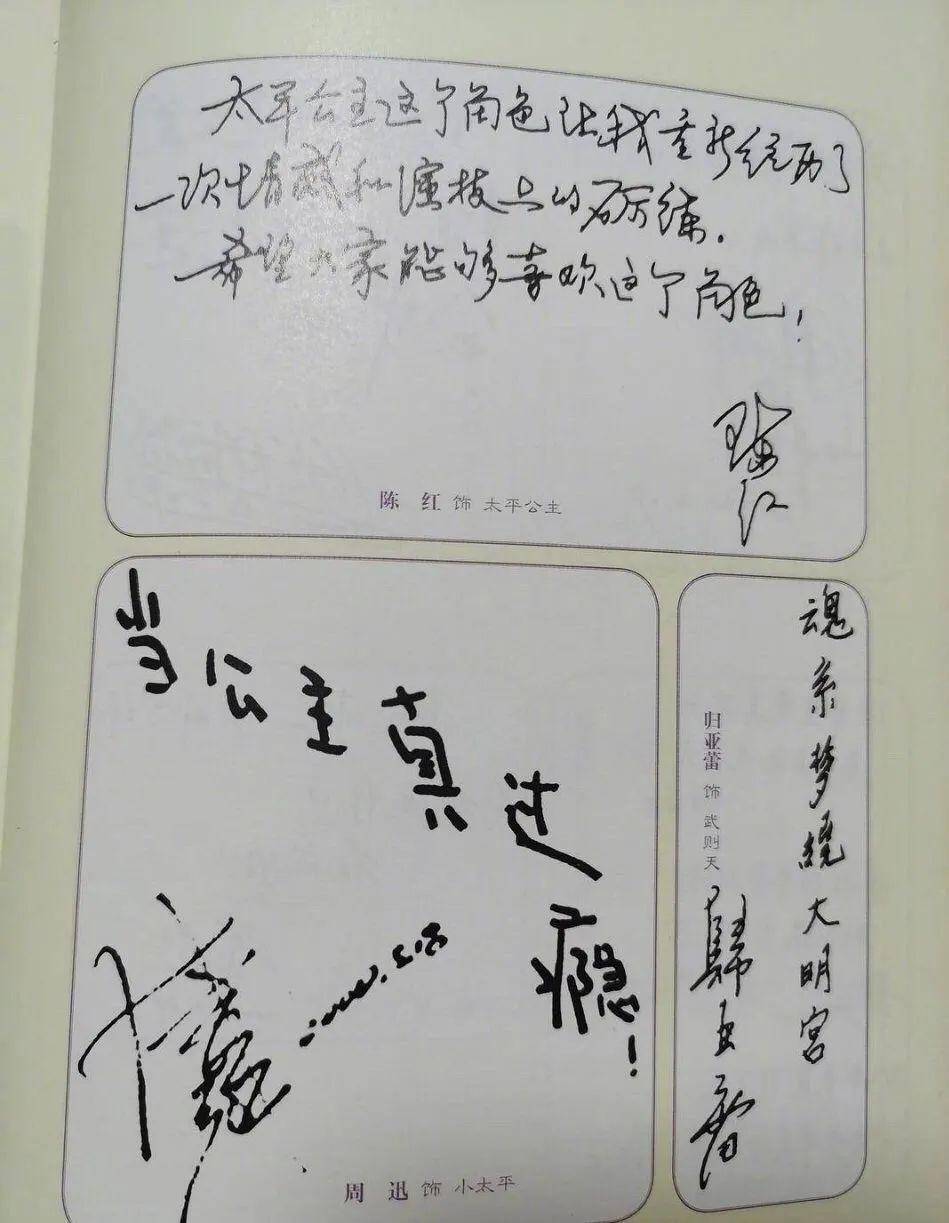 太平公主这个角色让我重新经历了
一次情感和演技上的砺练.
希望大家能够喜欢这个角色!
陈红
陈 红 饰 太平公主
当公主真过瘾!
周 迅 饰 小太平
魂系梦繞大明宫
归亚蕾 饰 武则天
歸亚蕾